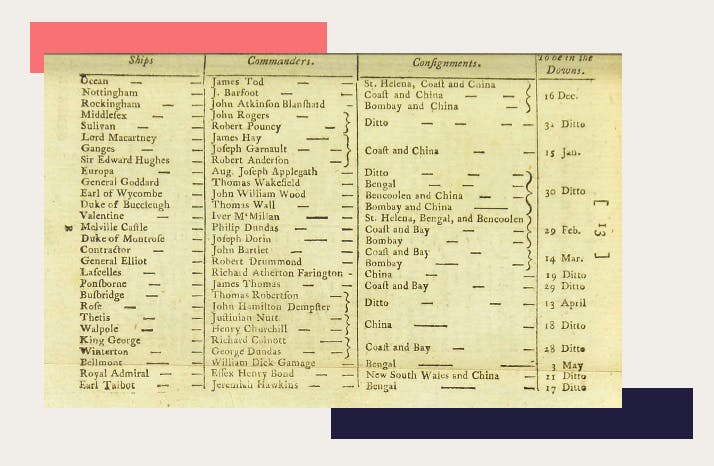 Ships Commanders. Conſignments. To be in the Downs.
Ocean — James Tod — — St. Helena, Coaſt and China
Nottingham — J. Barfoot — — Coaſt and China — — 16 Dec.
Rockingham — — John Atkinſon Blanſhard - Bombay and China —
Middleſex — — John Rogers — —
Sulivan — — Robert Pouncy — — Ditto — — — — 31 Ditto
Lord Macartney — James Hay — —
Ganges — — Joſeph Garnault — — Coaſt and China — — 15 Jan.
Sir Edward Hughes — Robert Anderſon —
Europa — — Aug. Joſeph Applegath — Ditto — — —
General Goddard — Thomas Wakefield — Bengal — — —
Earl of Wycombe — John William Wood — Bencoolen and China — — 30 Ditto
Duke of Buccleugh — Thomas Wall — — Bombay and China —
Valentine — — Iver M'Millan — — St. Helena, Bengal, and Bencoolen
Melville Caſtle — Philip Dundas — — Coaſt and Bay — — 29 Feb.
Duke of Montroſe — Joſeph Dorin — — Bombay — —
Contractor — — John Bartlet — — Coaſt and Bay — —
General Elliot — Robert Drummond — Bombay — — 14 Mar.
Laſcelles — — Richard Atherton Farington - China — — 19 Ditto
Ponſborne — — James Thomas — — Coaſt and Bay — — 29 Ditto
Buſbridge — — Thomas Robertſon —
Roſe — — John Hamilton Dempſter — Ditto — — — 13 April
Thetis — — Juſtinian Nutt —
Walpole — — Henry Churchill — — China — — 18 Ditto
King George — Richard —
Winterton — — George Dundas — — Coaſt and Bay — — 28 Ditto
Bellmont — — William Dick Gamage — Bengal — — 3 May
Royal Admiral — — Eſſex Henry Bond — — New South Wales and China — 11 Ditto
Earl Talbot — — Jeremiah Hawkins — — Bengal — — 17 Ditto
[ 13 ]